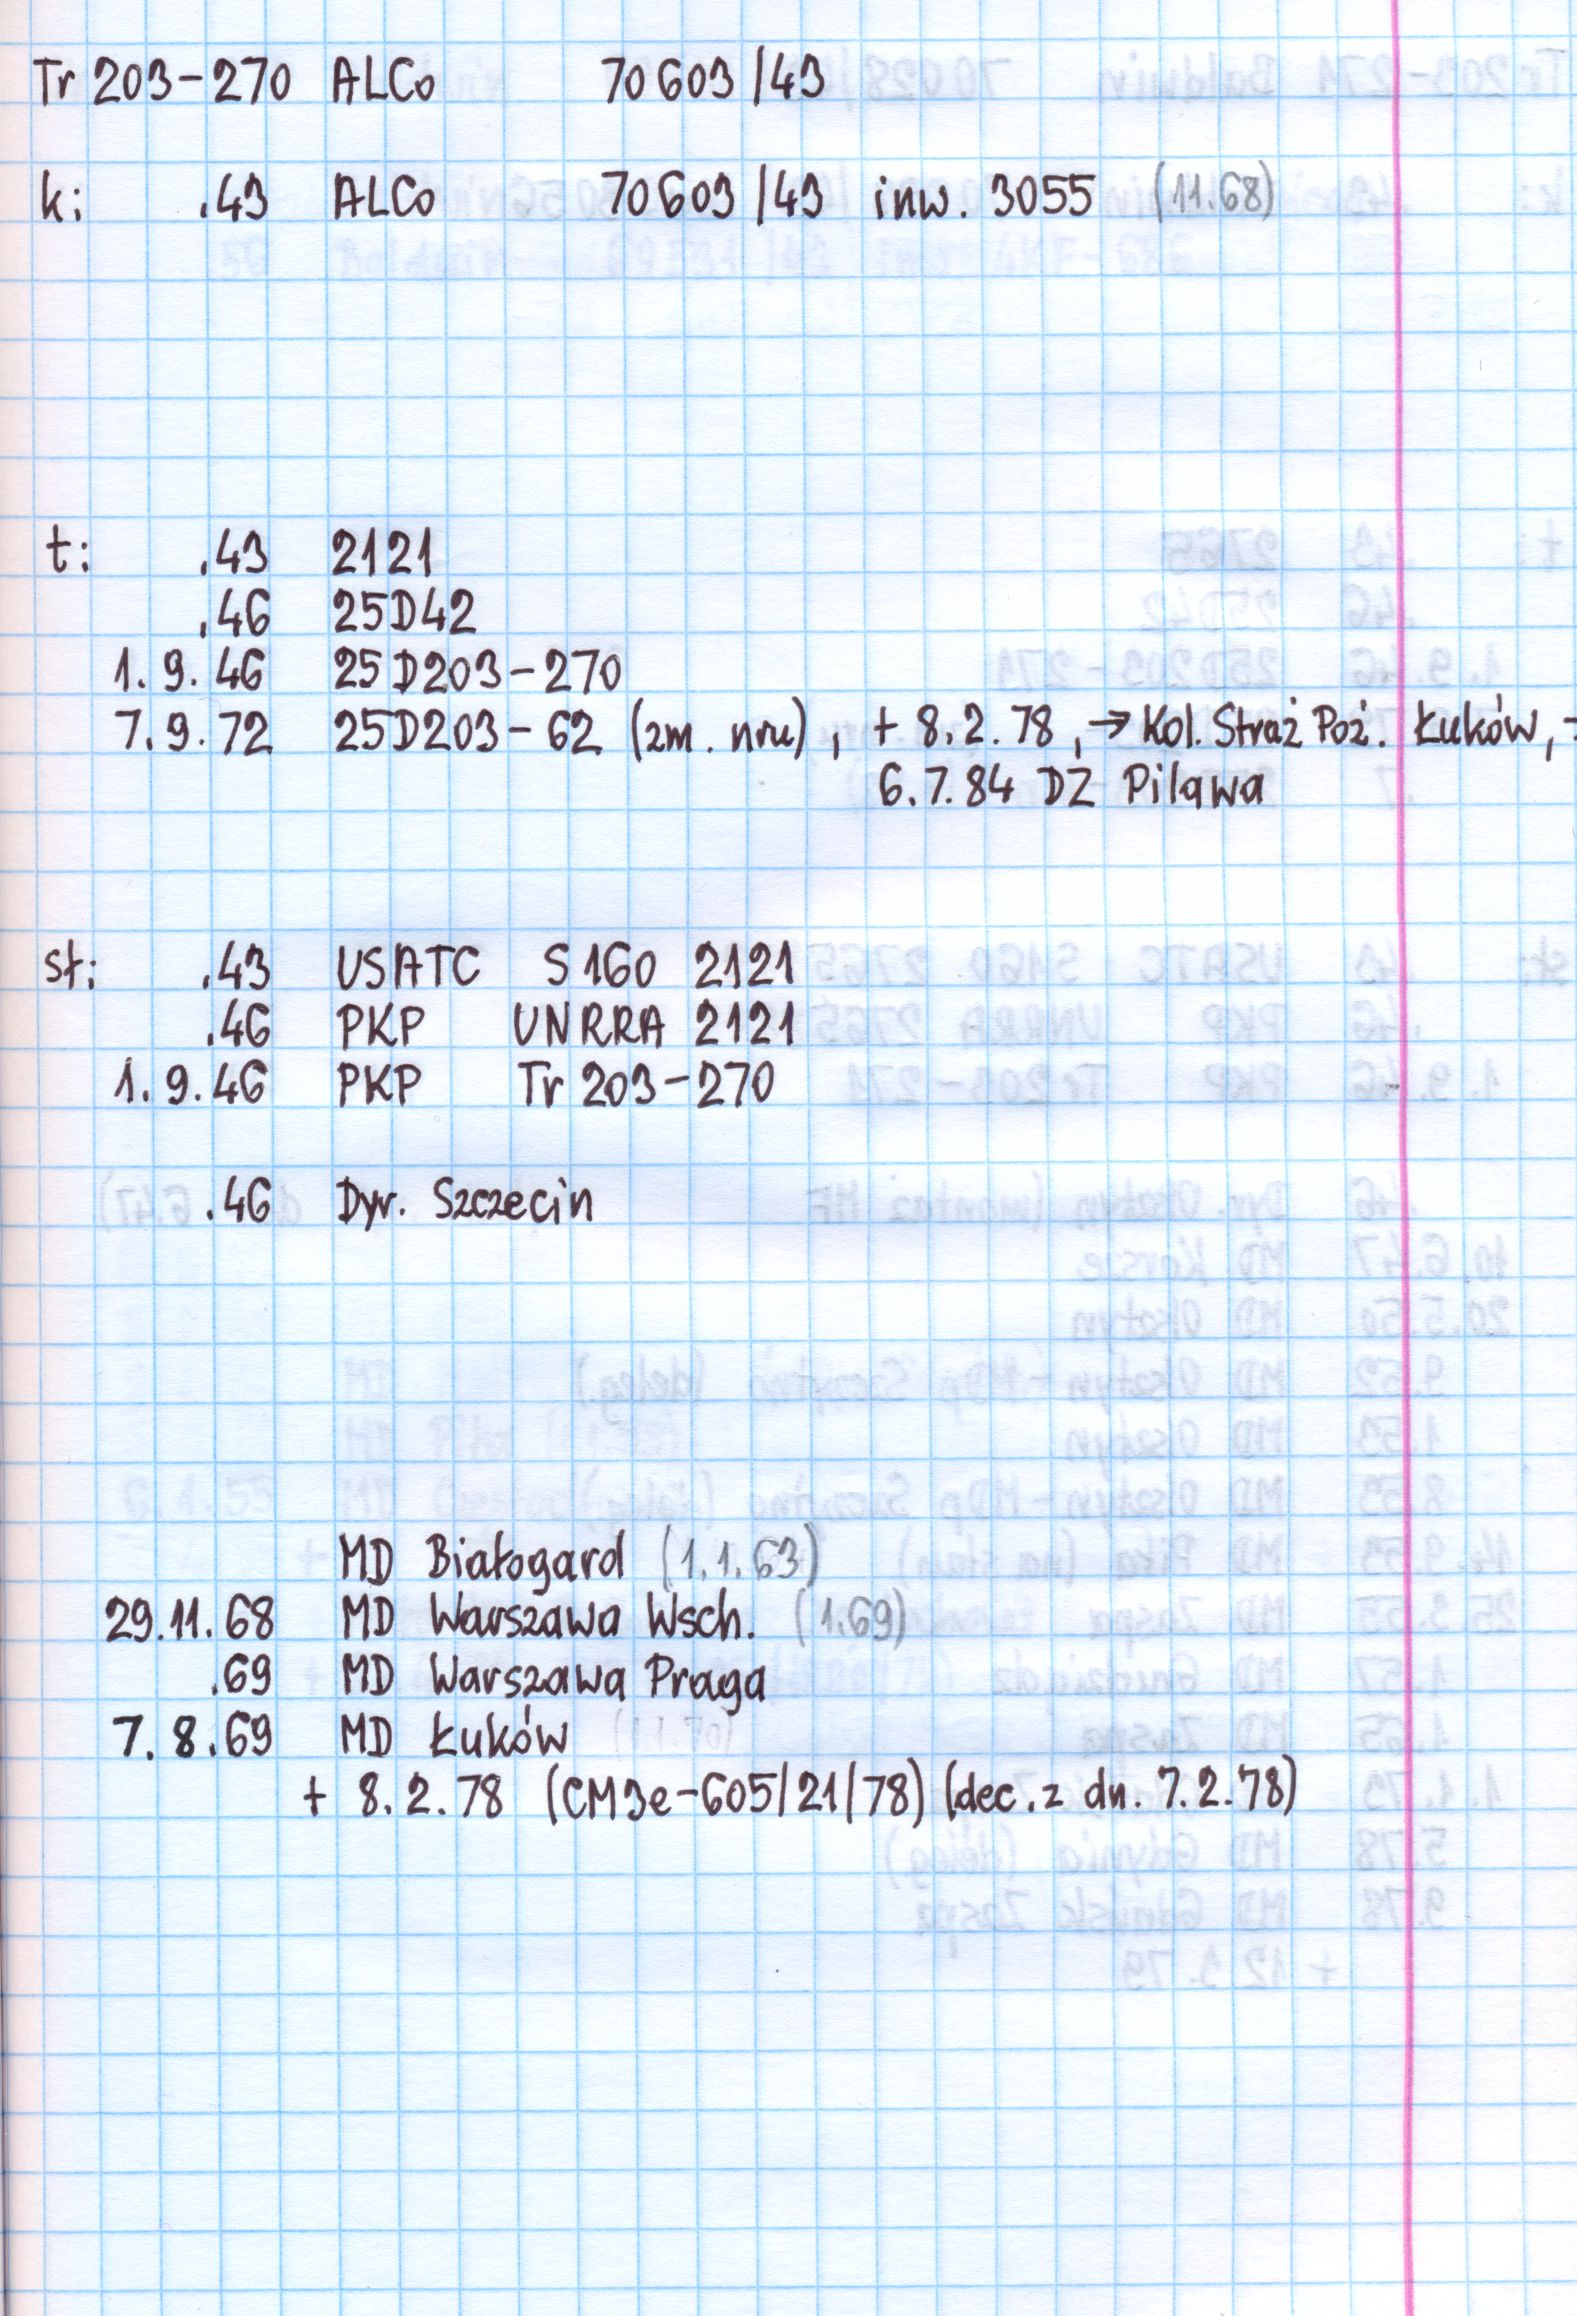 Tr 203-270 ALCo 70603/43
k: .43 ALCo 70603/43 inw. 3055 (11.68)
t: .43 2121
.46 25D42
1.9.46 25D203-270
7.9.72 25D203-62 (zm. nru), + 8.2.78, → Kol. Straż Poż. Łuków, →
6.7.84 DZ Pilawa
st: .43 USATC S160 2121
.46 PKP UNRRA 2121
1.9.46 PKP Tr 203-270
.46 Dyr. Szczecin
MD Białogard (1.1.63)
29.11.68 MD Warszawa Wsch. (1.69)
.69 MD Warszawa Praga
7.8.69 MD Łuków
+ 8.2.78 (CM3e-605/21/78) (dec. z dn. 7.2.78)